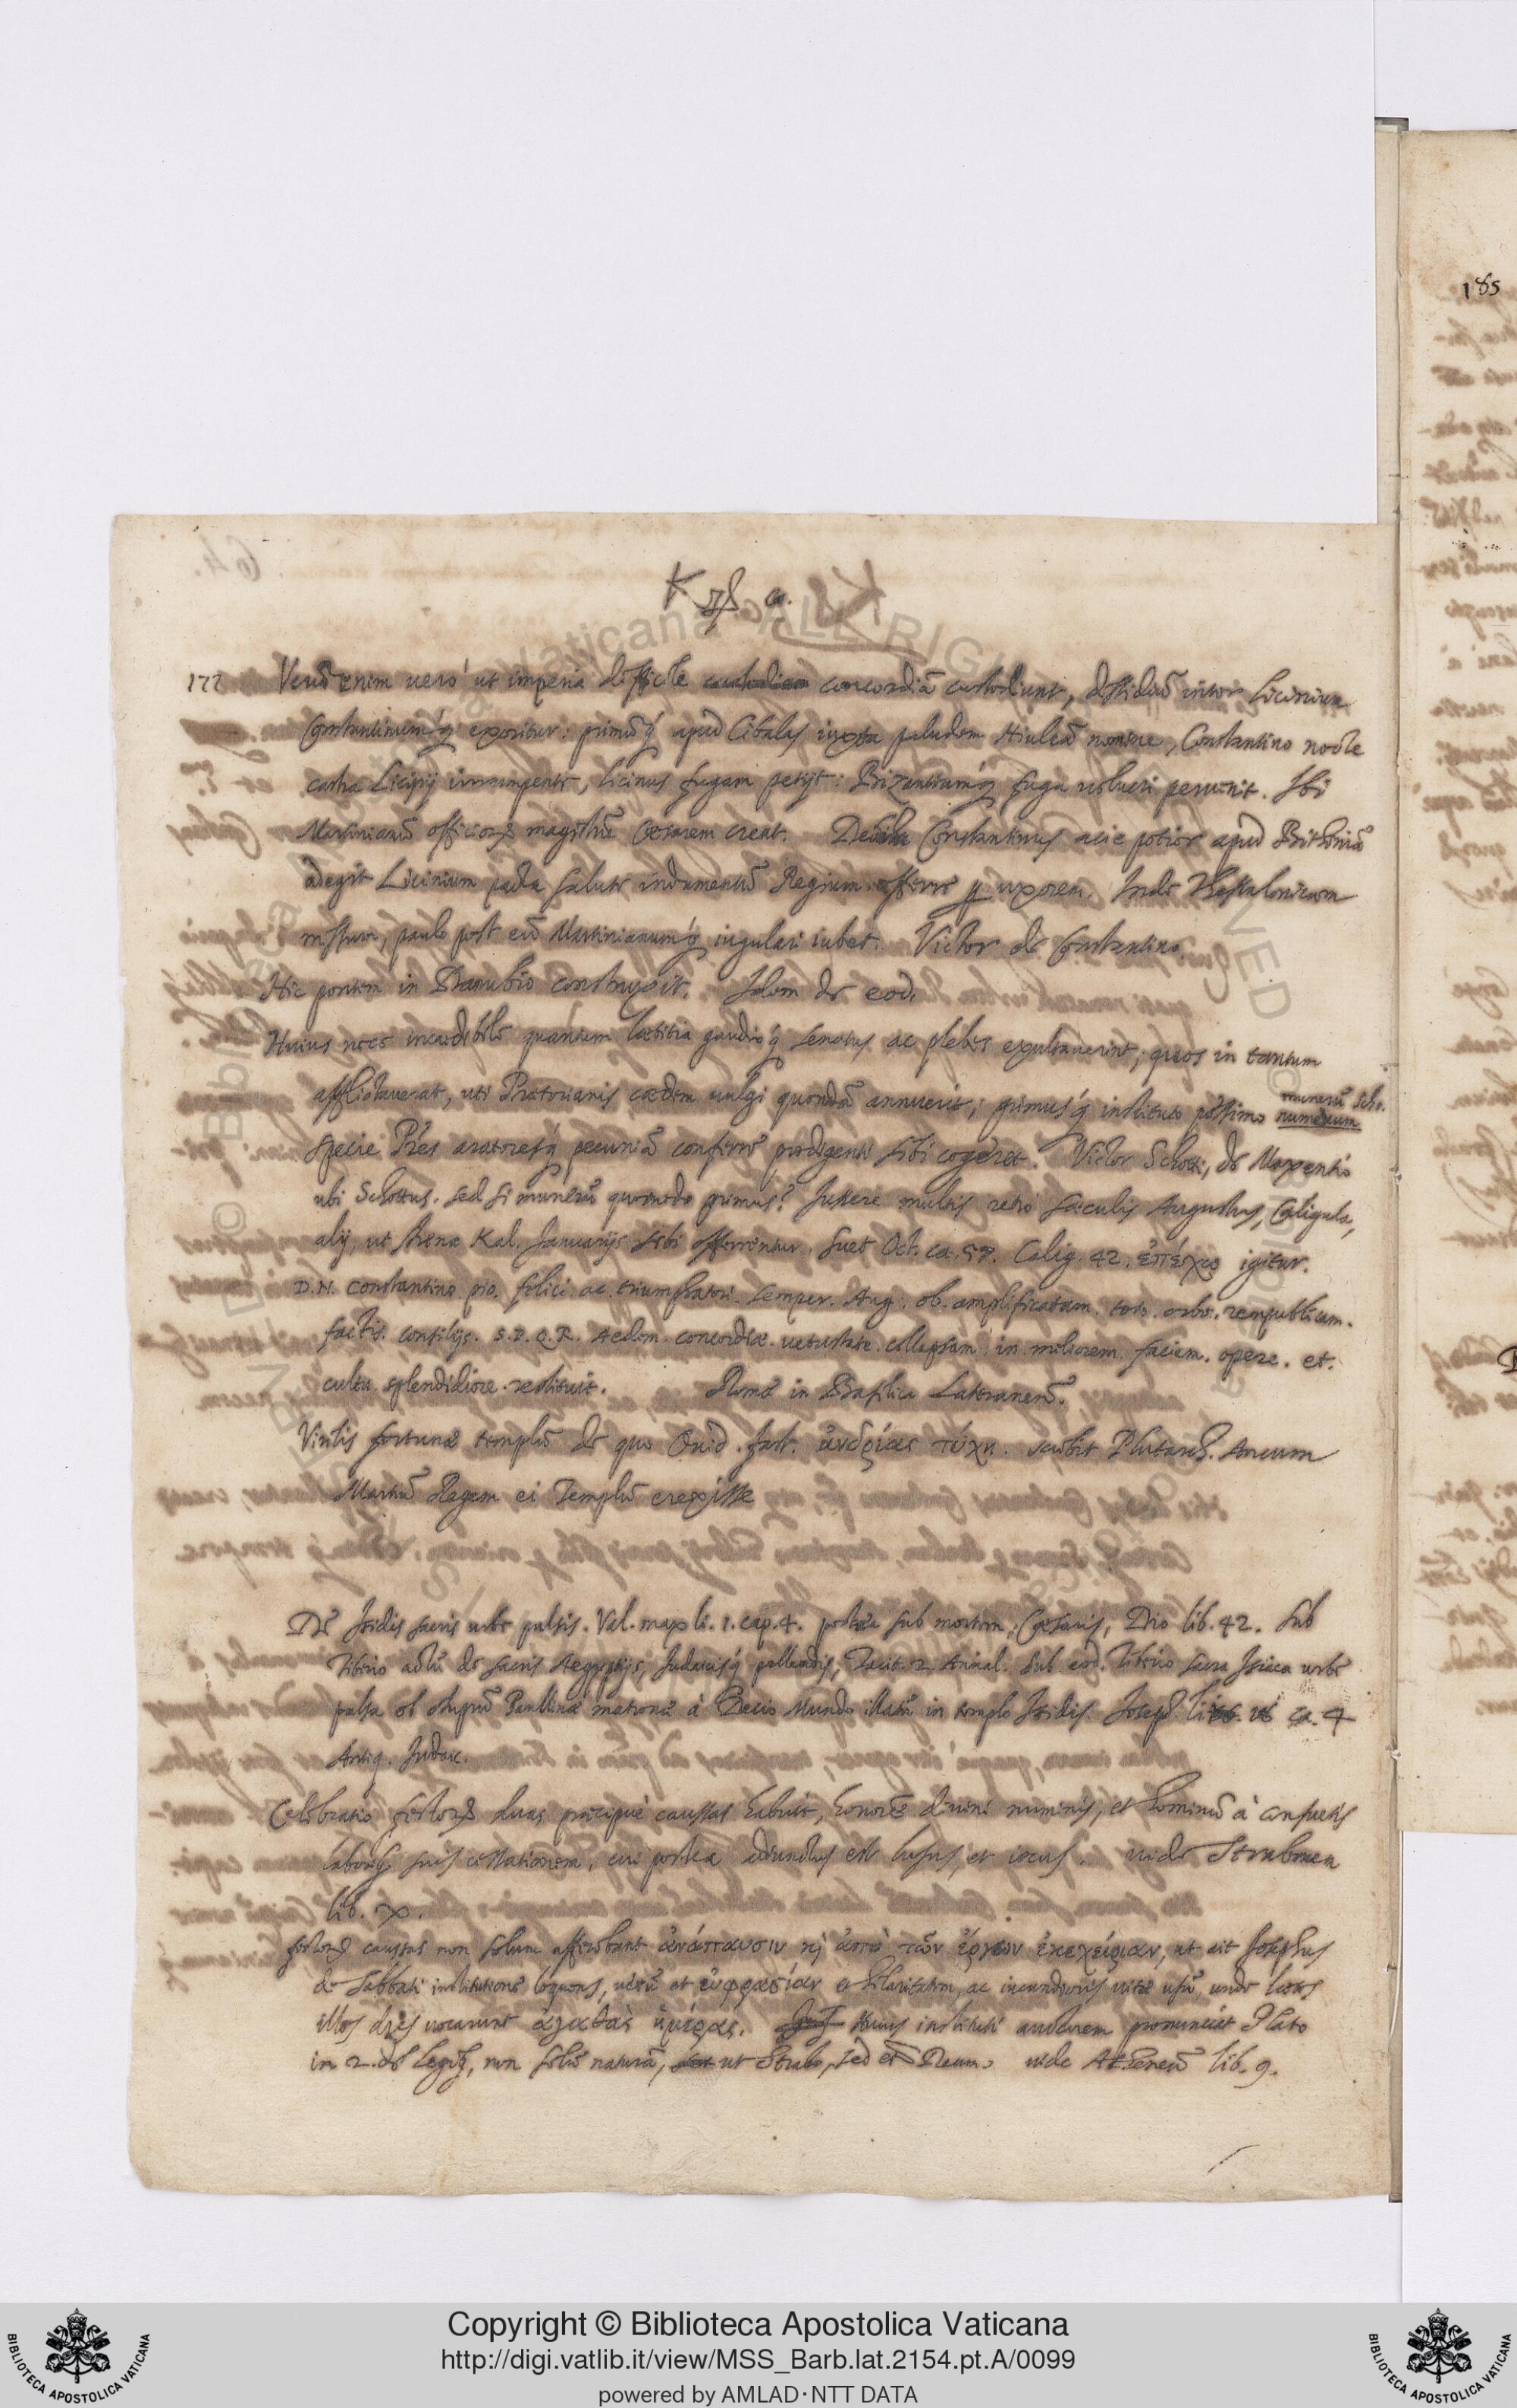 185
177 Verũ enim uero ut imperia difficile custodien concordiã custodiunt, dissidiũ inter Licinium
Constantinumq́ exoritur: primũq́ apud Cibalas iuxta paludem Hiulcã nomine, Constantino nocte
castra Licinij irrumpente, Licinus fugam petijt: Bizantiumq́ fuga uolucri peruenit. Ibi
Martinianũ officiorũ magistrũ Caesarem creat. Dehinc Constantinus acie potior apud Bithiniã
adegit Licinium pacta salute indumentũ Regium offerre ꝑ uxorem. Inde Thessalonicam
missum, paulo post eũ Martinianumq́ iugulari iubet. Victor de Constantino.
Hic pontem in Danubio construxit. Idem de eod.
Huius nece incredibile quantum laetitia gaudioq́ senatus ac plebes exultauerint; quos in tantum
afflictauerat, uti Praetorianis caedem uulgi quondã annuerit; primusq́ instituto pessimo numerum
munerũ Scho.
specie P̃res aratoresq́ pecuniã conferre prodigenti sibi cogeret. Victor Schotti, de Maxentio
ubi Schottus. sed si munerũ quomodo primus? Iussere multis retro saeculis Augustus, Caligula,
alij, ut strenae Kal. Januarijs sibi offerrentur. Suet Oct. ca. 57. Calig. 42. ἐπέχω igitur.
D. N. Constantino pio. felici ac. triumphatori. semper. Aug. ob. amplificatam. toto. orbe. rempublicam.
factis. consilijs. S. P. Q. R. Aedem. concordiae. uetustate. collapsam in meliorem faciem. opere. et.
cultu splendidiore. restituit. Romae in Basilica Lateranen̄.
Virilis fortunae templũ de quo Ouid. fast. ἀνδρίας τύχη. scribit Plutarch. Ancum
Martiũ Regem ei Templũ erexisse
De Isidis sacris urbe pulsis. Val. max li. 1. cap. 4. postea sub mortem Caesaris, Dio lib. 42. sub
Tiberio actũ de sacris Aegyptijs, Iudaicisq́ pellendis, Tacit. 2. Annal. Sub eod. Tiberio sacra Isiaca urbe
pulsa ob stuprũ Paulinae matronae à Decio Mundo illatũ in templo Isidis. Joseph. ca. 4
Antiq. Judaic.
Celebratio festorũ duas praecipuè caussas habuit, honorẽ diuini numinis, et hominũ à consuetis
laborib9 suis cessationem, cui postea adiunctus est lusus, et iocus. uide Strabonen
lib. x.
festorũ caussas non solum afferebant ἀνάπαυσιν κ̀ ἀπὸ τῶν ἔργων ἐκεχείριαν, ut ait Josephus
de Sabbati institutione loquens, uerũ et εὐφρασίαν et hilaritatem, ac iucundioris uitae usũ, unde laetos
illos dies uocarunt ἀγαθὰς ἡμέρας. Huius instituti auctorem pronunciat Plato
in 2. de Legib9, non solũ naturã, ut Strabo, sed et Deum. uide Athenaeũ lib. 9.
Copyright © Biblioteca Apostolica Vaticana
http://digi.vatlib.it/view/MSS_Barb.lat.2154.pt.A/0099
powered by AMLAD·NTT DATA
BIBLIOTECA APOSTOLICA VATICANA
BIBLIOTECA APOSTOLICA VATICANA